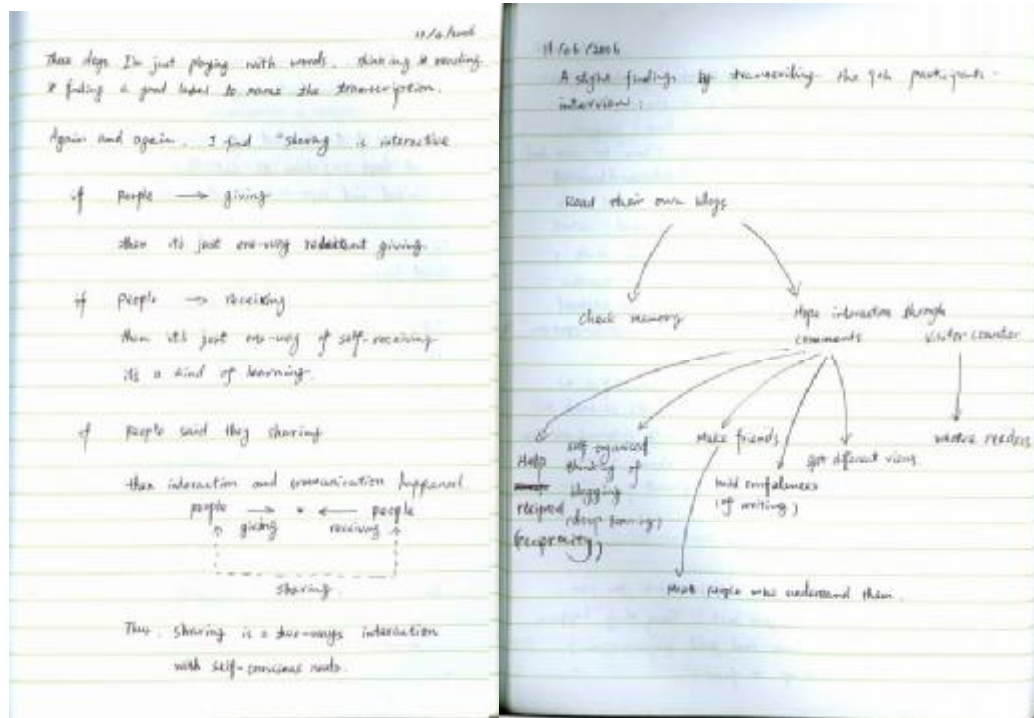 These days I'm just playing with words. thinking & reading
& finding a good label to name the transcription.
Again and again. I find "sharing" is interactive
if people → giving
then it's just one-way giving.
if people → receiving
then it's just one-way of self-receiving
its a kind of learning.
if people said they sharing
then interaction and communication happened
people → • ← people
giving receiving
sharing
Thus, sharing is a two-ways interaction
with self-conscious
19/06/2006
A slight findings by transcribing the 9th participants
interview:
Read their own blogs
Check memory
Hope interaction through
comments
Visitor counter
Help
reciprocal
(reciprocity)
self organised
thinking of
blogging
(deep learning)
Make friends
get different views
build confidences
(of writing)
readers
Meet people who understand them.